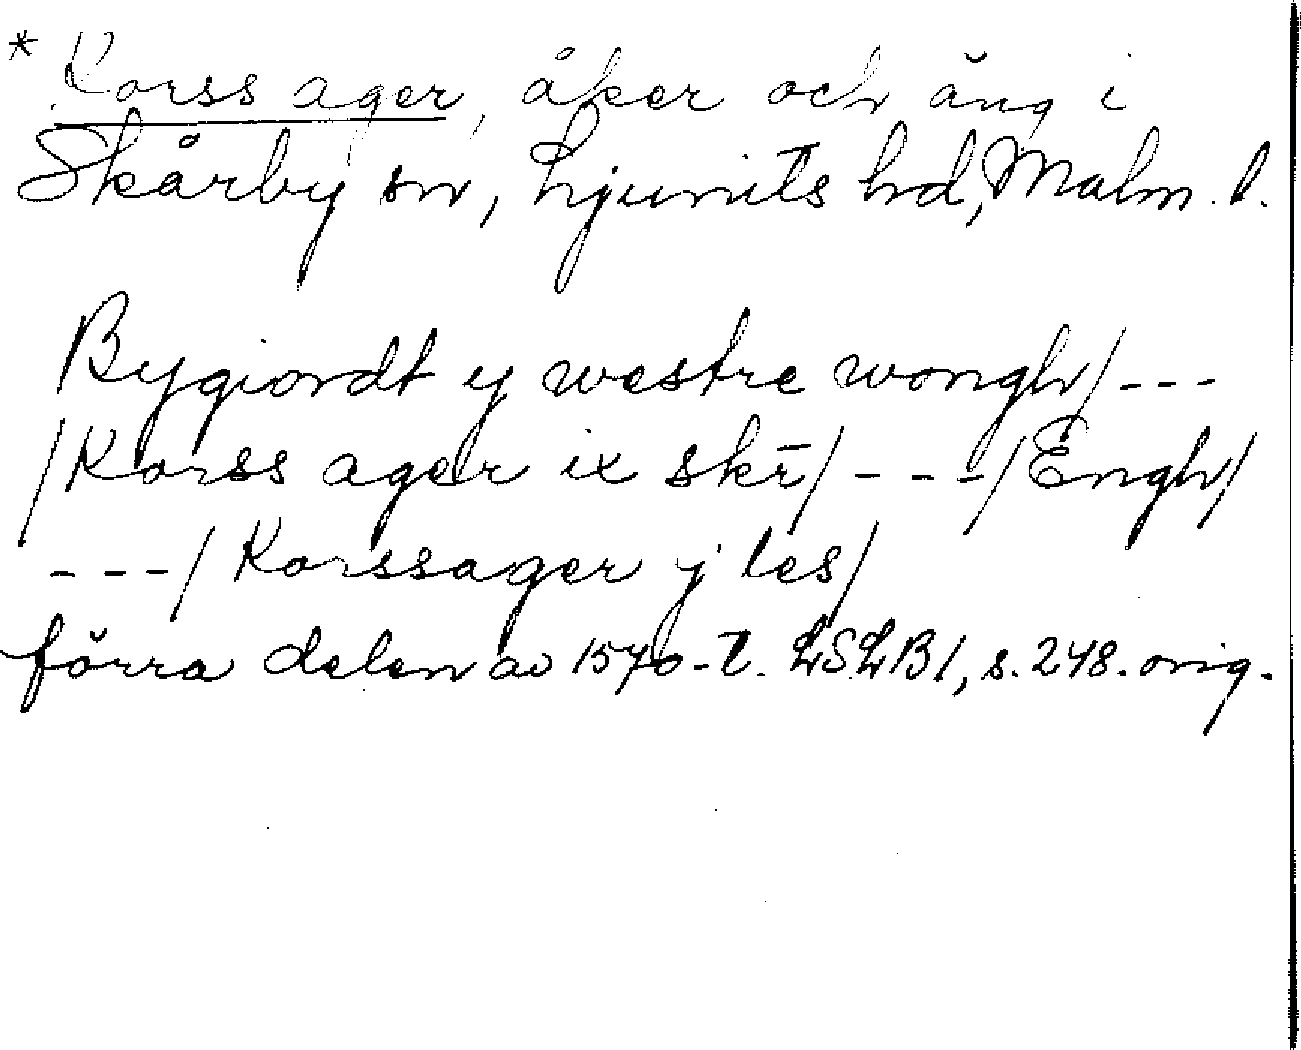 * Korss ager, åker och äng i
Skårby sn, Ljunits hd, Malm. l.
Bygiordt y westre wongh/ ---
/Korss ager ix skr̄/ ---/Engh/
---/Korssager j les/
förra delen av 1570-t. LSLB1, s. 248. orig.